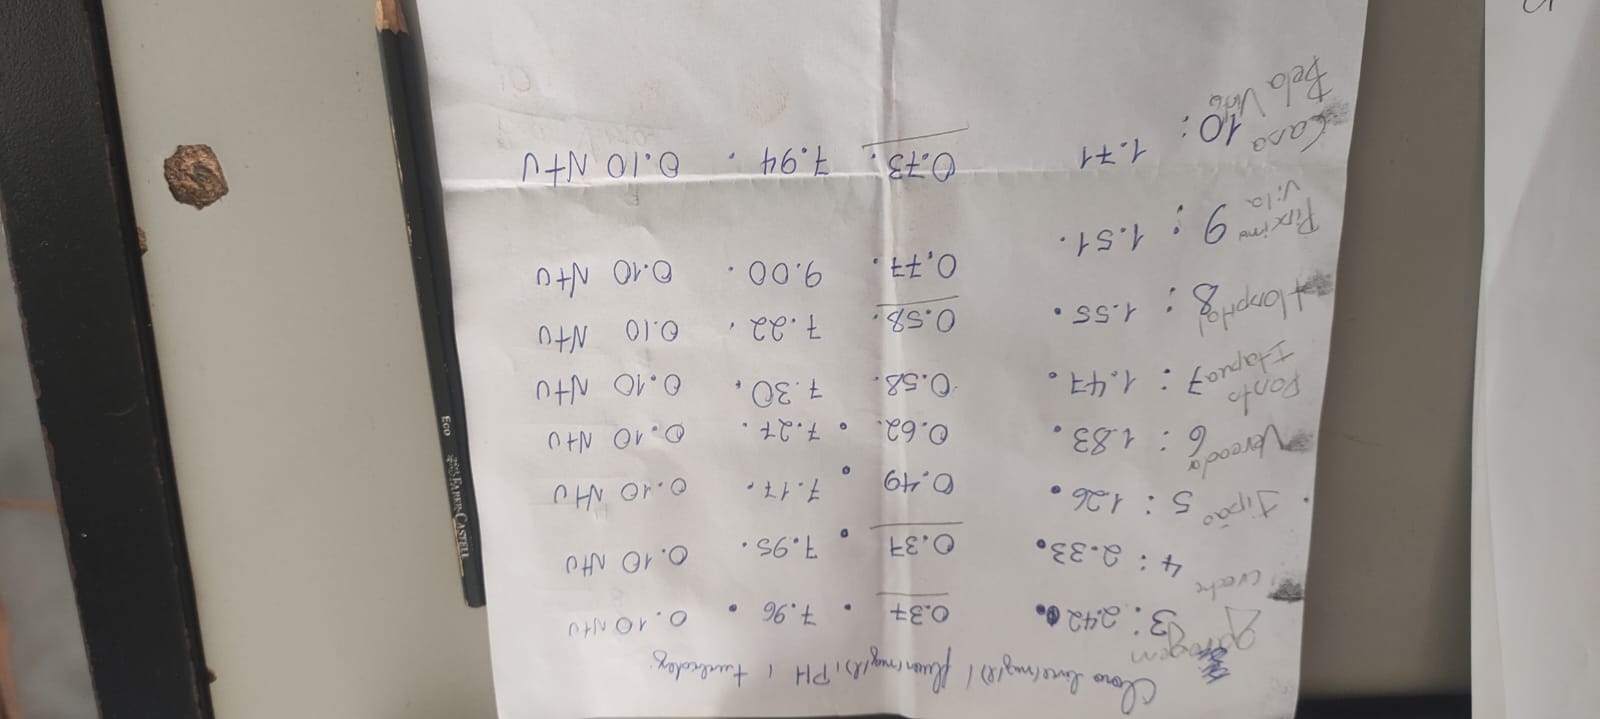 Cloro livre(mg/l) / fluor(mg/l), PH , turbidez.
garagem 3: 2.420. 0.37 . 7.96 . 0.10 NtU
creche 4: 2.33. 0.37 . 7.95. 0.10 NtU
Jipão 5: 1.26. 0.49 . 7.17. 0.10 NtU
Vereador 6: 1.83. 0.62. . 7.27. 0.10 NtU
Ponto
Itapua 7: 1.47. 0.58. 7.30. 0.10 NtU
Hospital 8: 1.55. 0.58. 7.22. 0.10 NtU
9: 1.51. 0.77. 9.00. 0.10 NtU
Vila
Casa 10: 1.71 0.73. 7.94. 0.10 NtU
Bela Vista
FABER-CASTELL
Eco